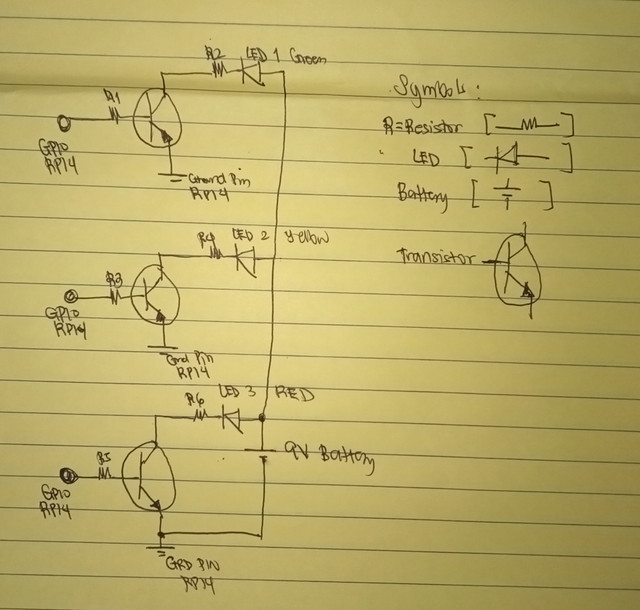 R2 LED 1 Green
R1
GPIO
RPI4
Ground Pin
RPI4
R4 LED 2 Yellow
R3
GPIO
RPI4
Gnd Pin
RPI4
R6 LED 3 RED
R5
9V Battery
GPIO
RPI4
GRD PIN
RPI4
Symbols :
R=Resistor [ ]
LED [ ]
Battery [ ]
Transistor